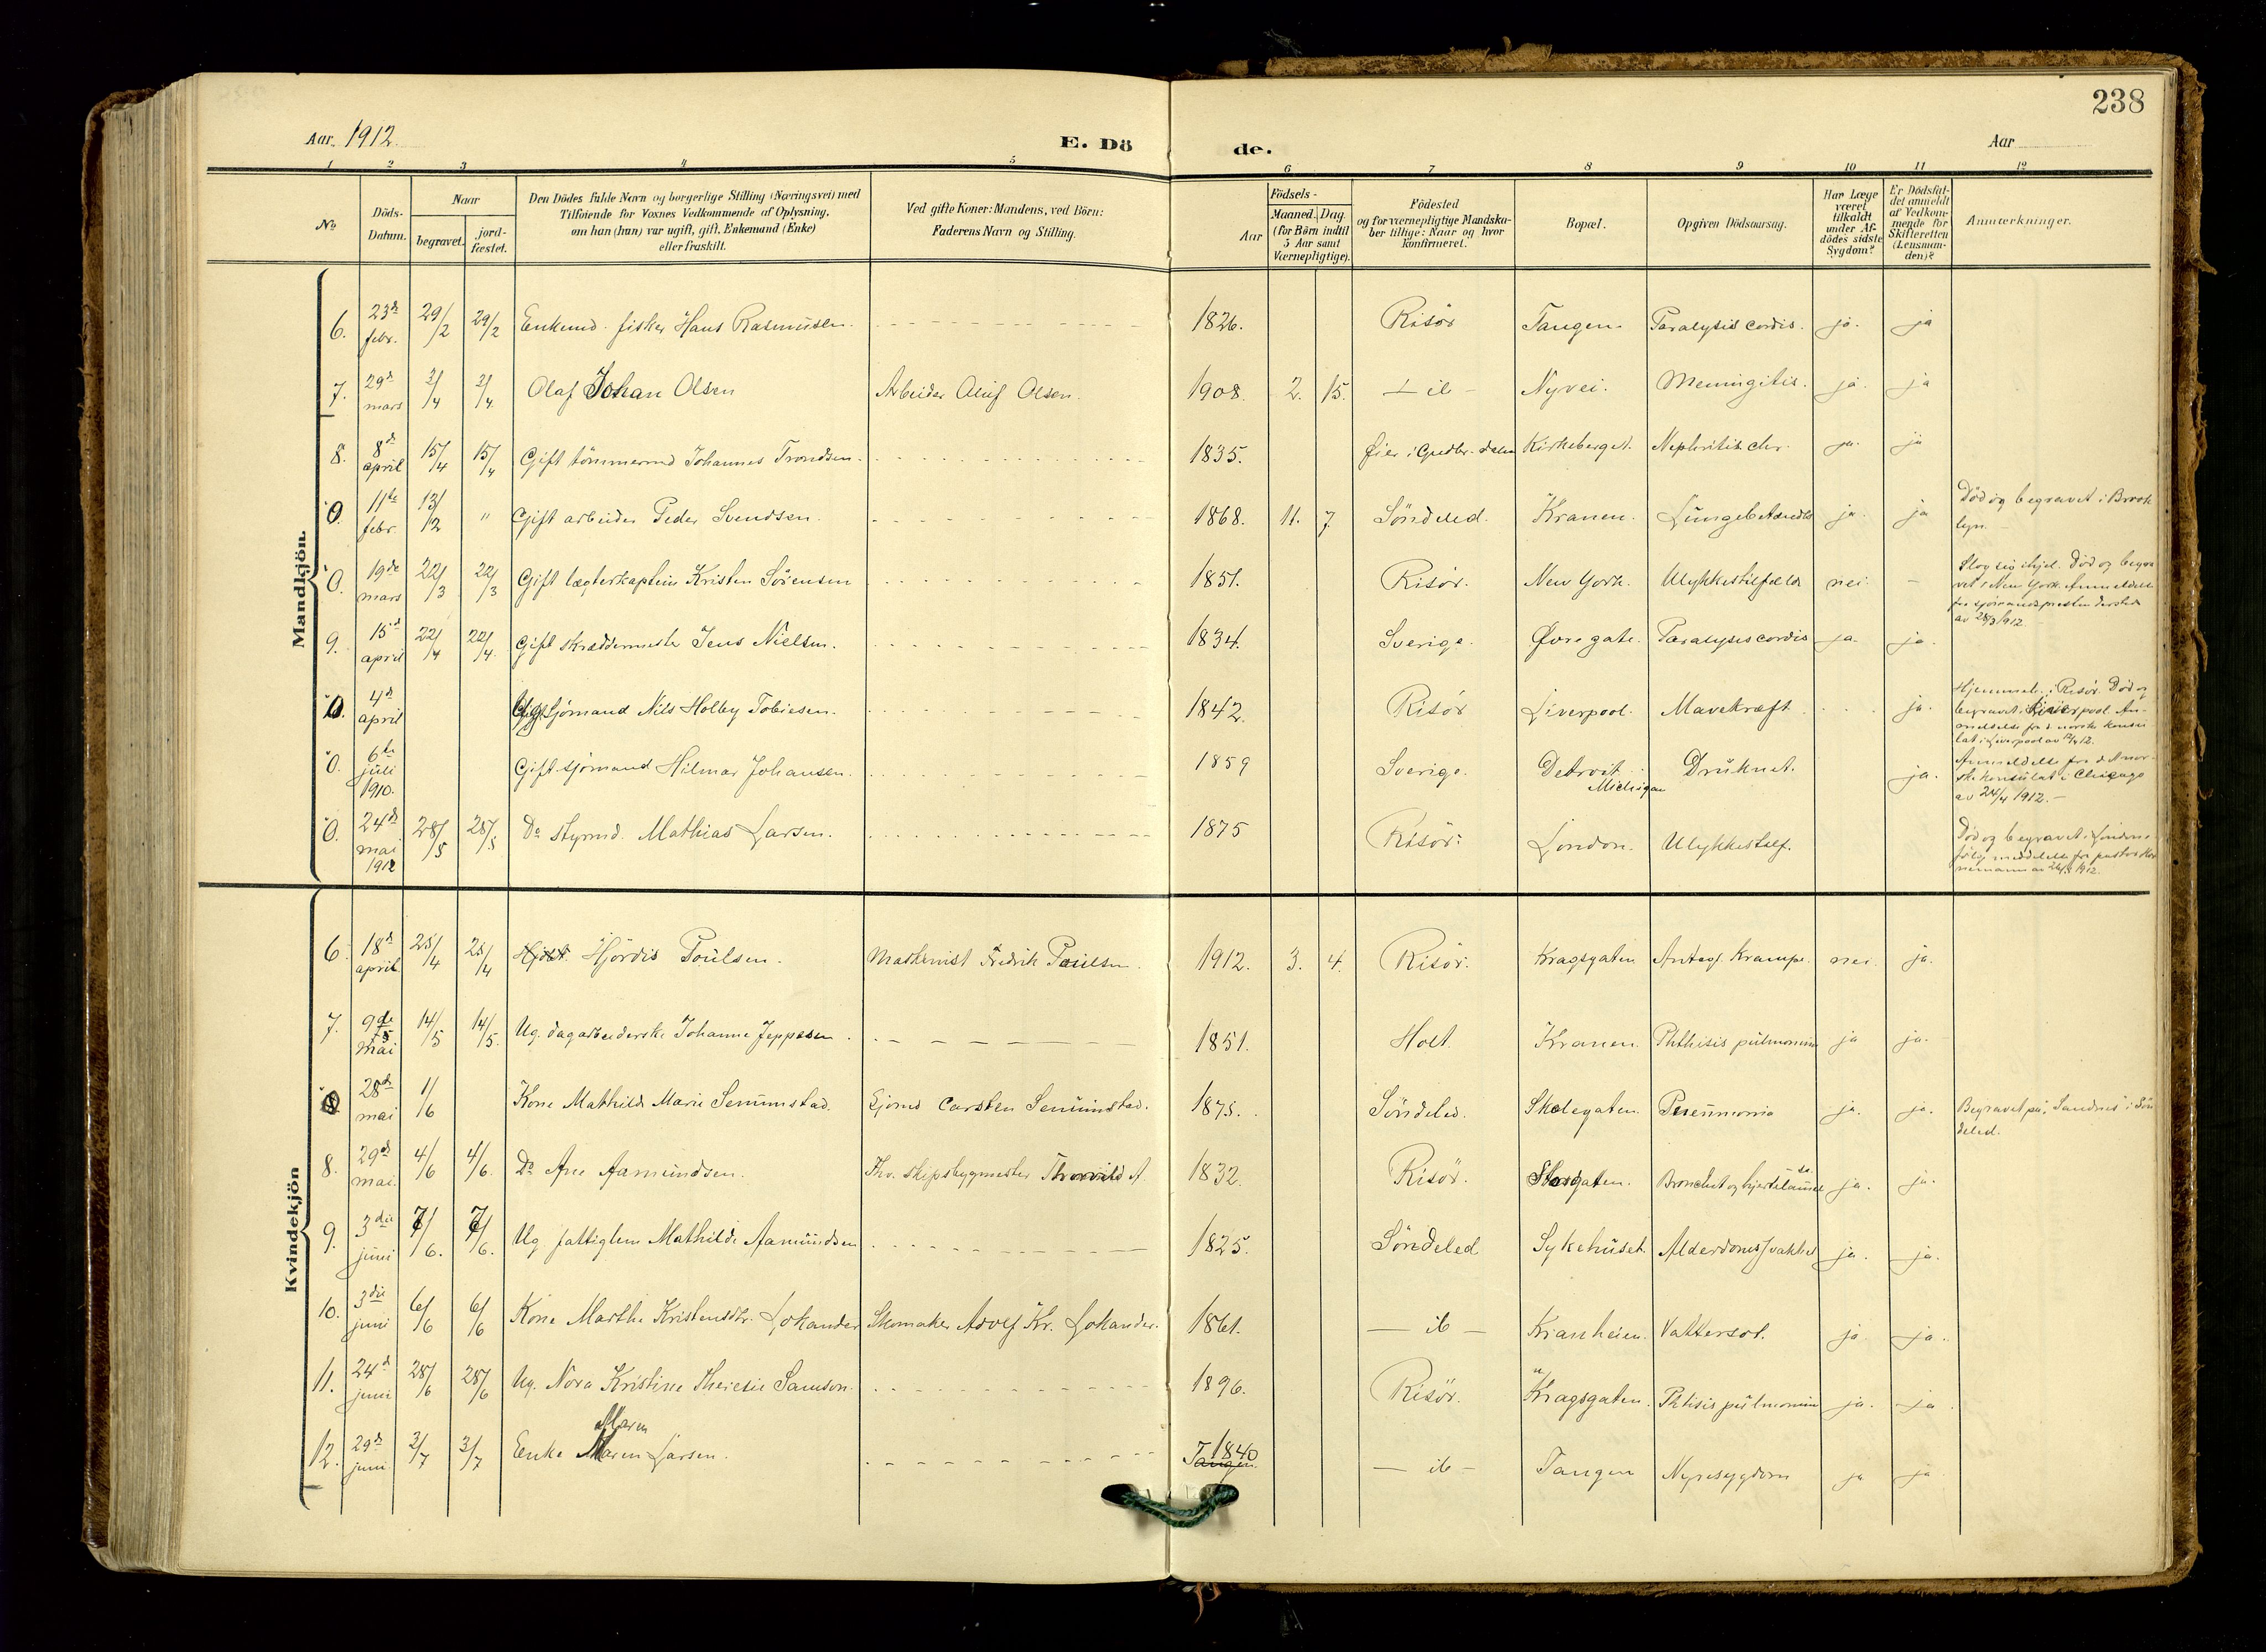 238
Aar 1912.
E. Döde.
Aar
1 2 3 4 5 6 7 8 9 10 11 12
No
Döds-Datum.
Naar
begravet.
jord-fæstet.
Den Dödes fulde Navn og borgerlige Stilling (Næringsvei) med
Tilföiende for Voxnes Vedkommende af Oplysning,
om han (hun) var ugift, gift, Enkemand (Enke)
eller fraskilt.
Ved gifte Koner: Mandens, ved Börn:
Faderens Navn og Stilling.
Födsels-
Aar
Maaned. Dag.
(for Börn indtil
5 Aar samt
Værnepligtige).
Födested
og for værnepligtige Mandska-
ber tillige: Naar og hvor
konfirmeret.
Bopæl.
Opgiven Dödsaarsag.
Har Læge
været
tilkaldt
under Af-
dödes sidste
Sygdom?
Er Dödsfal-
det anmeldt
af Vedkom-
mende for
Skifteretten
(Lensman-
den)?
Anmærkninger.
Mandkjön.
6. 23d febr. 29/2 29/2 Enkemd. fisker Hans Rasmussen. 1826. Risör Tangen. Paralysis cordis. ja. ja
7. 29d mars 2/4 2/4 Olaf Johan Olsen Arbeider Oluf Olsen. 1908. 2. 15. — ib — Nyvei. Meningitis. ja. ja
8. 8d april 15/4 15/4 Gift tömmermd Johannes Trondsen. 1835. Øier i Gudbr. dalen Kirkeberget. Nephritis chr. ja. ja
0. 11te febr. 13/2 " Gift arbeider Peder Svendsen. 1868. 11. 7. Söndeled. Kranen. Lungebetændelse ja. ja Död og begravet i Brook
lyn.
0. 19de mars 22/3 22/3 Gift lægterkaptein Kristen Sörensen 1851. Risör. New York. Ulykkestilfælde nei. — Slog sig ihjel. Död og begra
vet i New York. Anmeldelse
fra sjömandspresten dersteds
av 28/3 1912.
9. 15d april 22/4 22/4. Gift skræddermester Jens Nielsen. 1834. Sverige. Øvregate. Paralysis cordis ja. ja.
0. 4d april Ug. Sjömand Nils Holby Tobiesen. 1842. Risör Liverpool. Mavekræft. ja. Hjemmeh. i Risör. Död og
begravet i Liverpool. An-
meldelse fra d. norske konsu
lat i Liverpool av 12/4 12.
0. 6te juli 1910. Gift sjömand Hilmar Johansen. 1859 Sverige. Detroit Michigan Druknet. ja. Anmeldelse fra d. nor-
ske konsulat i Chicago
av 24/4 1912.
0. 24d mai 1912 28/5 28/5 Do styrmd. Mathias Larsen. 1875 Risör. London. Ulykkestilf. Död og begravet i London i-
fölg meddelelse fra pastor
av 1912.
Kvindekjön
6. 18d april 25/4 25/4 Hjördis Poulsen. Maskinist Fredrik Poulsen. 1912. 3. 4. Risör. Kragsgaten Antagl. krampe. nei. ja.
7. 9de mai 14/5 14/5. Ug. dagarbeiderske Johanne Jeppesen. 1851. Holt Kranen. Phthisis pulmonum ja ja.
0. 28d mai 1/6 Kone Mathilde Marie Semmenstad. Sjömd Carsten Semmenstad. 1875. Söndeled. Skolegaten. Pneumonia ja. ja. Begravet på "Sandnes" i Sön
deled.
8. 29d mai. 4/6 4/6. Do Ane Aamundsen. Fhv. skipsbygmester Thorvald A. 1832. Risör. Storgaten. Bronchit og hjertelammelse ja. ja.
9. 3die juni 7/6. 7/6. Ug fattiglem Mathilde Aamundsen 1825. Söndeled Sykehuset. Alderdomssvakhet ja. ja.
10. 3die juni 6/6 6/6 Kone Marthe Kristensdtr. Lokander Skomaker Adolf Kr. Lokander. 1861. — ib — Kranheien. Vattersot. ja. ja.
11. 24d juni 28/6 28/6 Ug. Nora Kristine Theresie Samson. 1896. Risör. Kragsgaten. Phtisis pulmonum ja. ja
12. 29d juni 3/7 3/7 Enke Maren Larsen. Maren 1840 Tangen. — ib — Tangen Nyresygdom ja ja